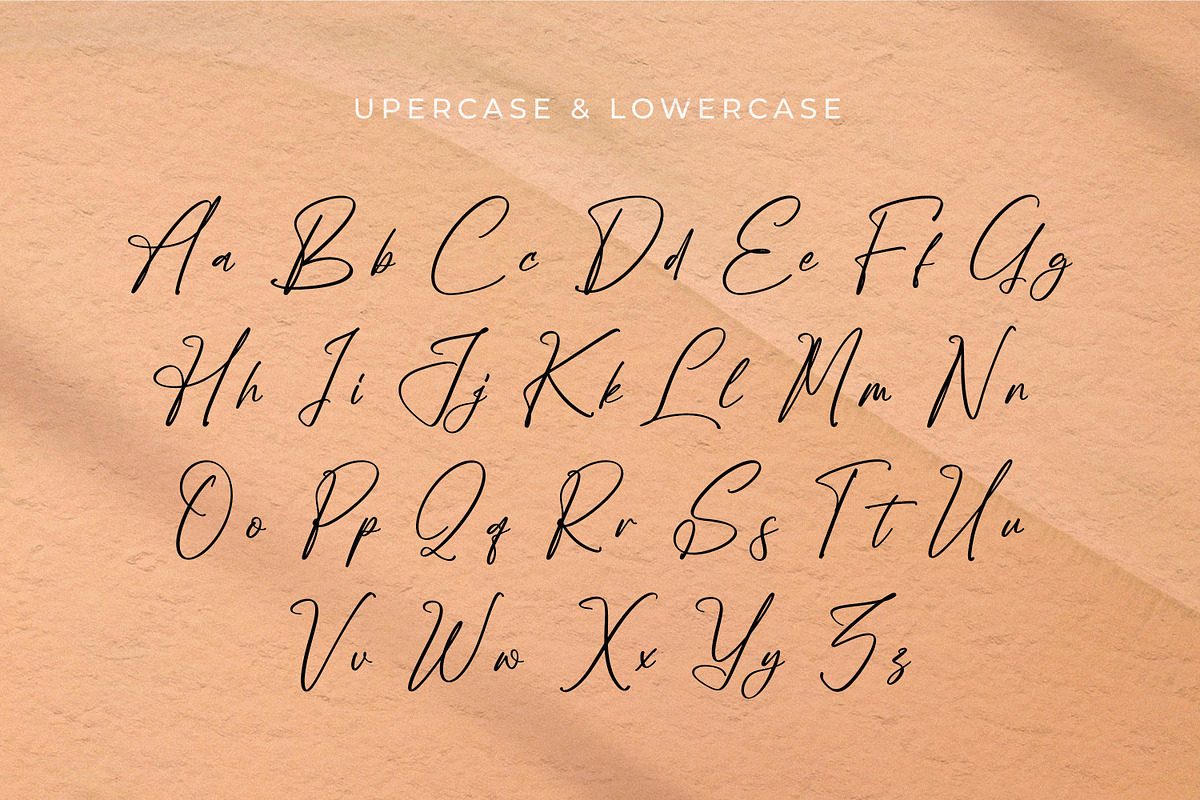 UPERCASE & LOWERCASE
Aa Bb Cc Dd Ee Ff Gg
Hh Ii Jj Kk Ll Mm Nn
Oo Pp Qq Rr Ss Tt Uu
Vv Ww Xx Yy Zz